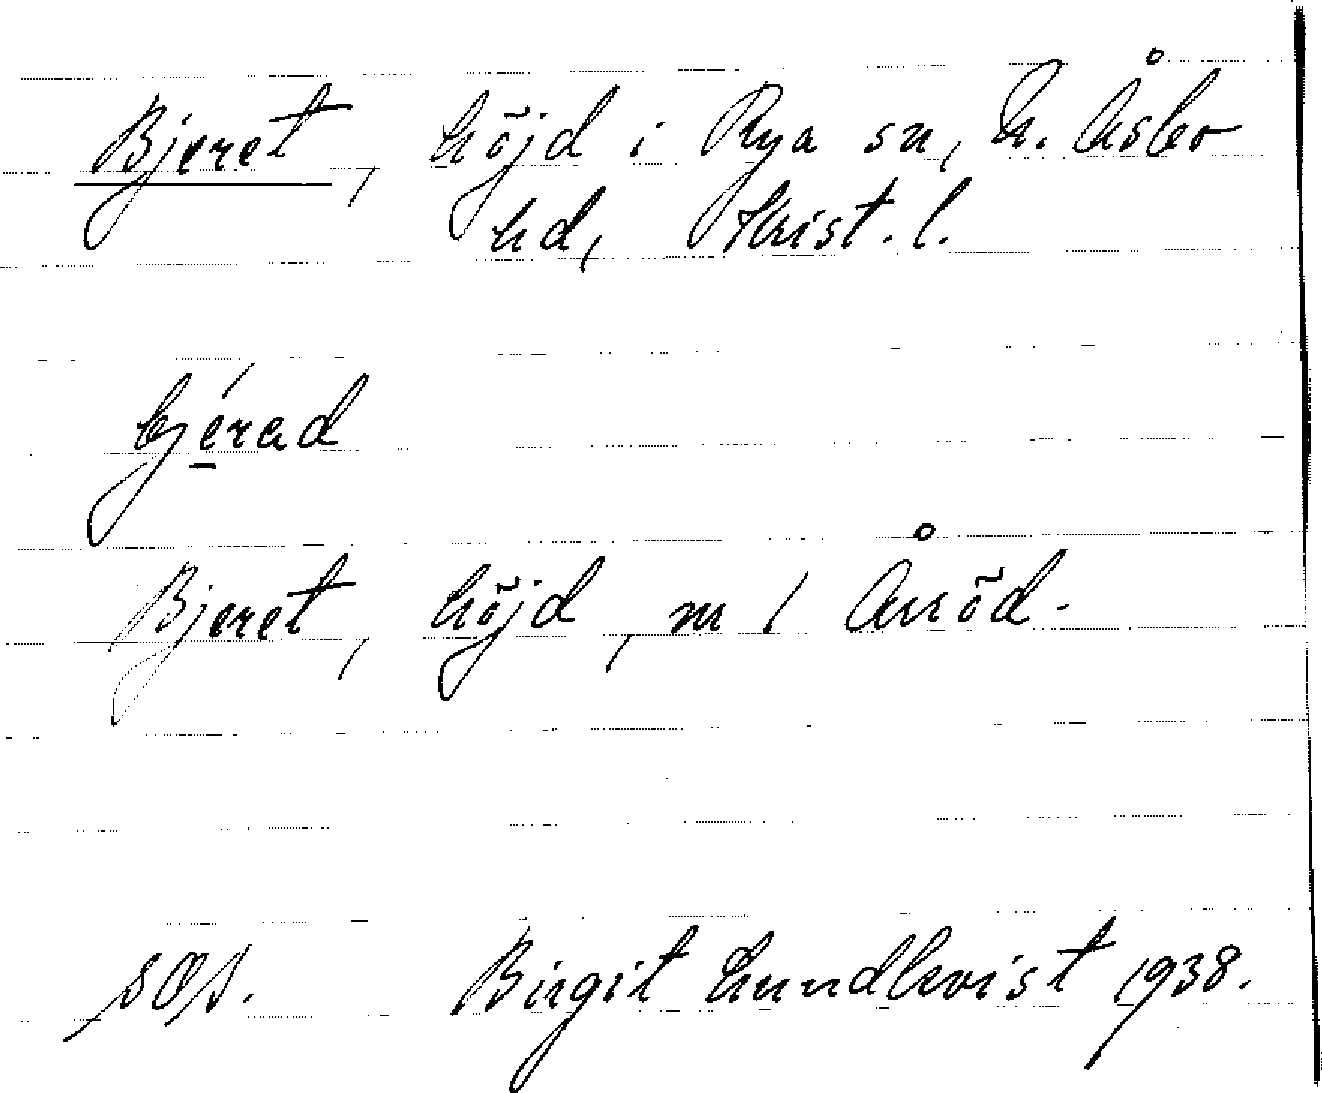 Bjeret, höjd i Rya sn, N. Åsbo
hd, Krist. l.
bjérad
Bjeret, höjd, m 1
Birgit Lundkvist 1938.